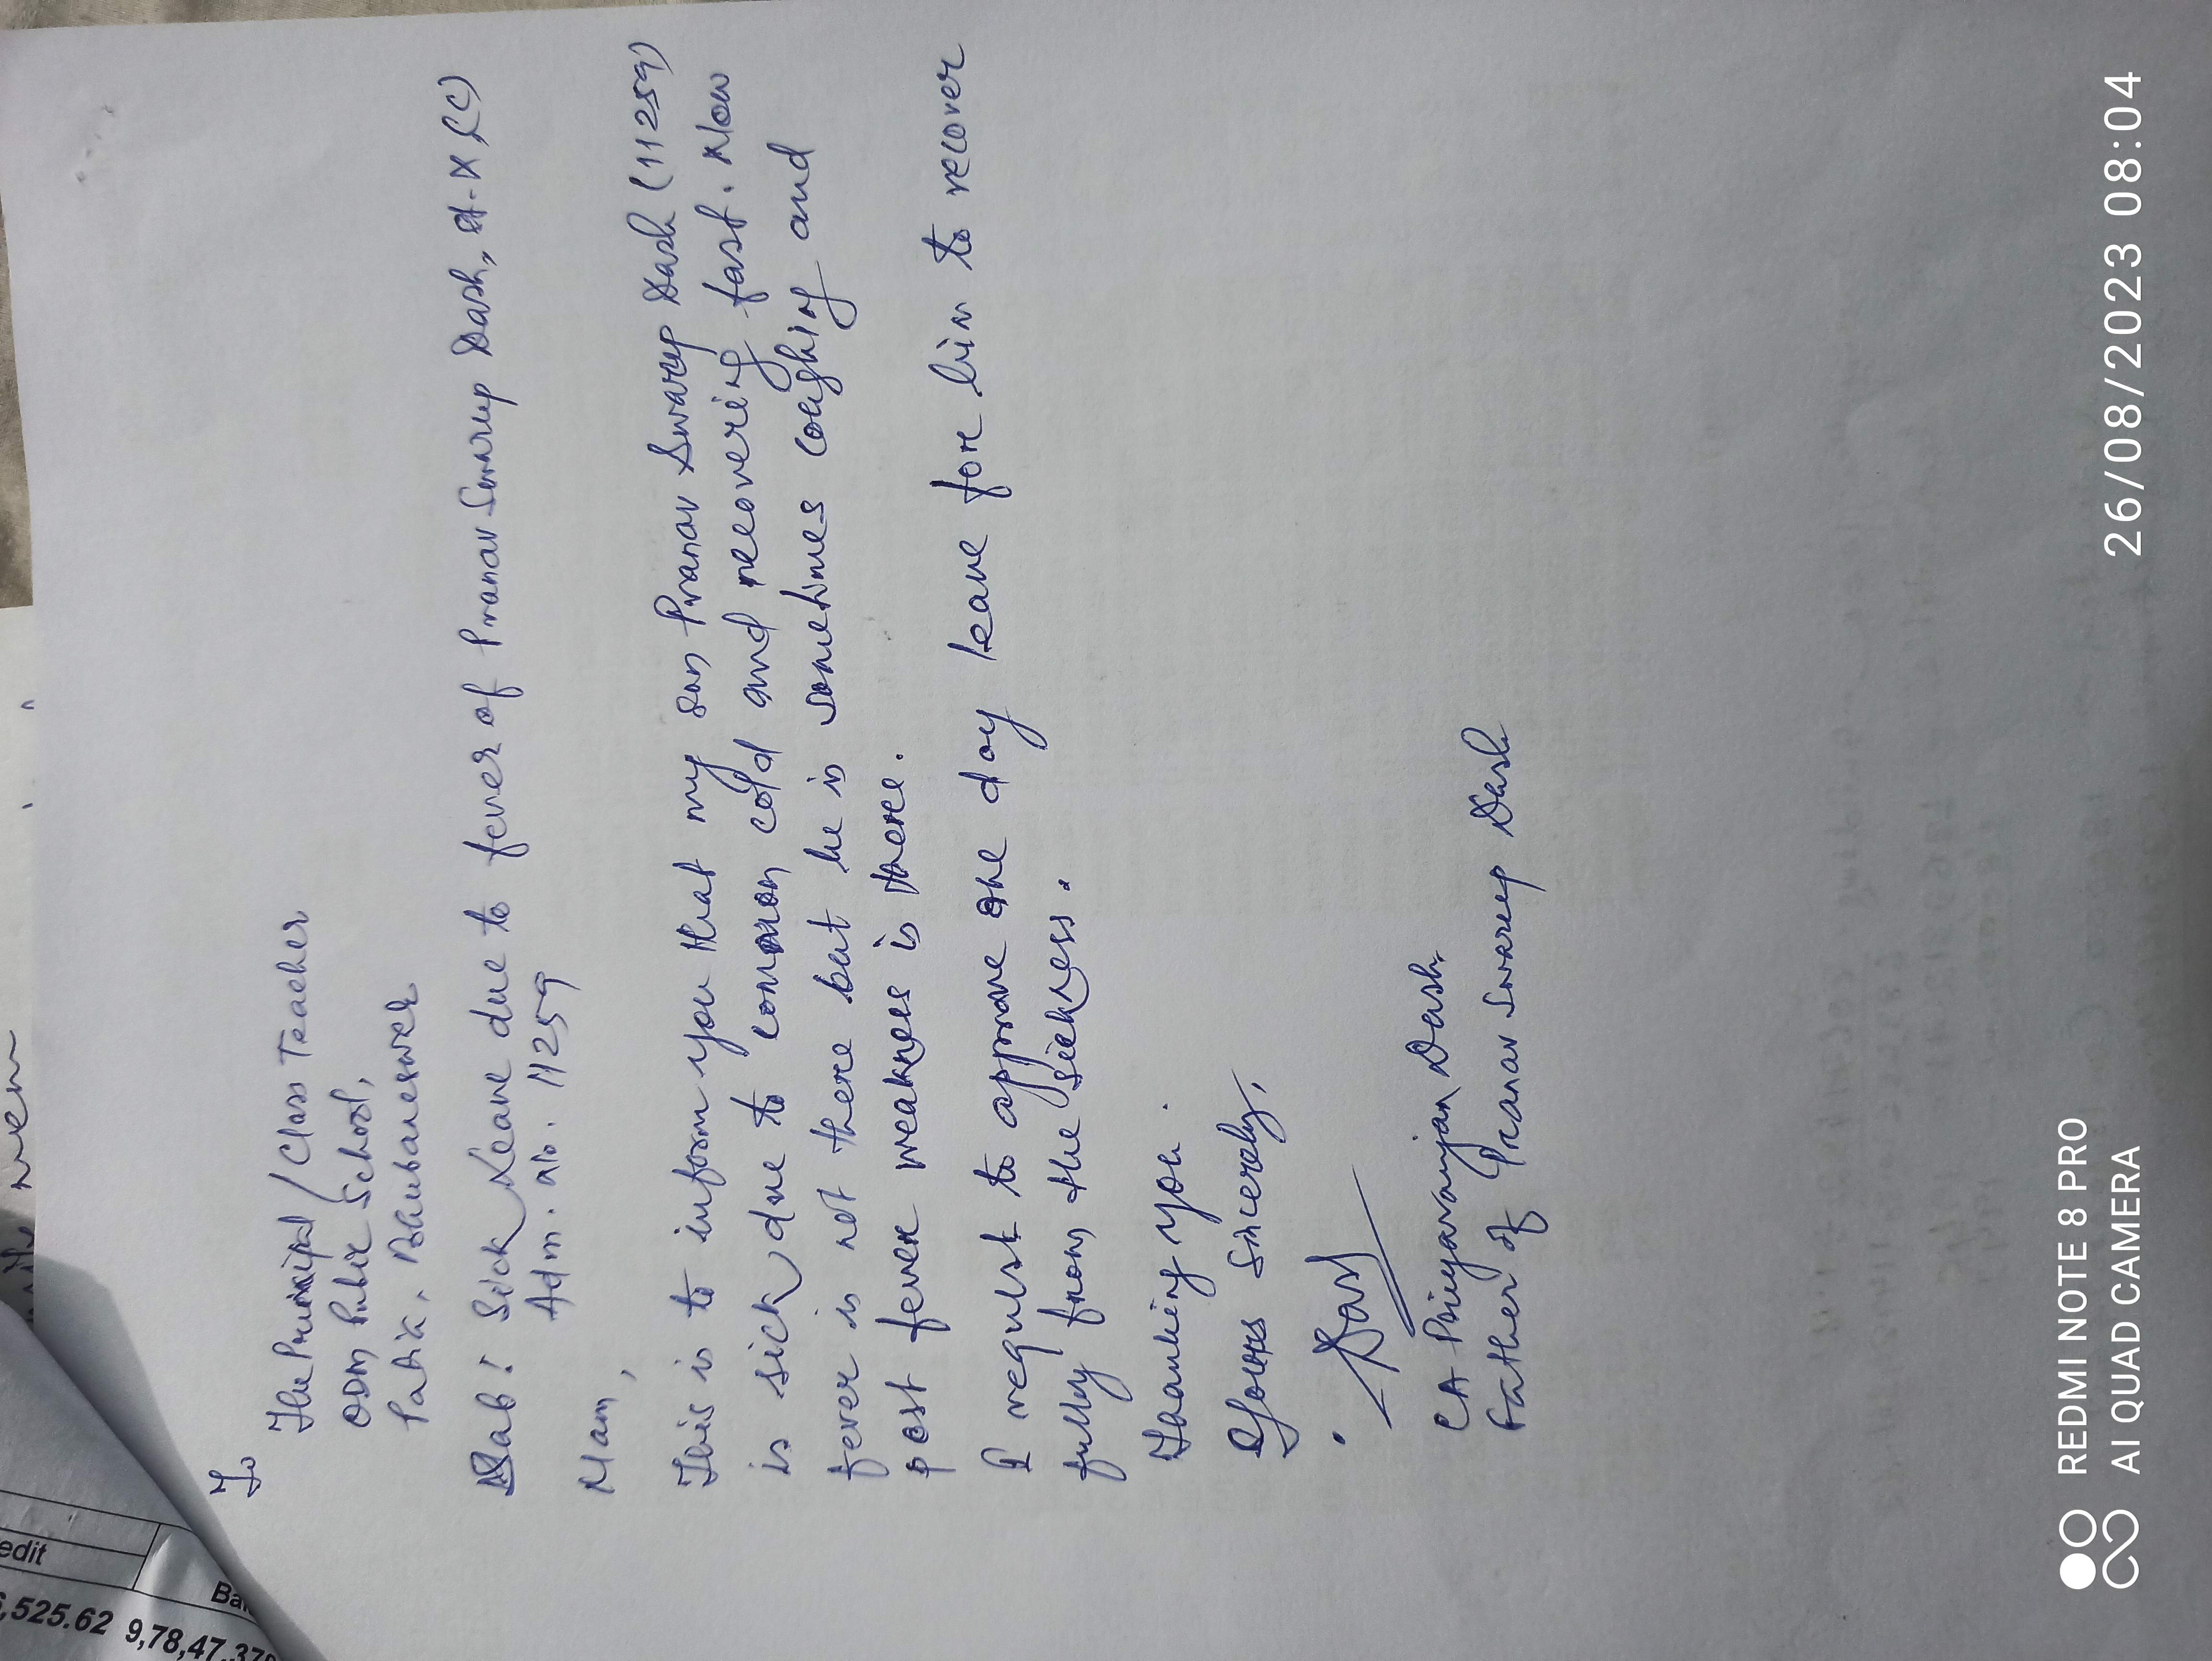 To
The Principal / Class Teacher
ODM Public School,
Patia, Bhubaneswer
Sub: Sick Leave due to fever of Pranav Swarup Dash, cl-X (C)
Adm. No. 11259
Mam,
This is to inform you that my son Pranav Swarup Dash (11259)
is sick due to common cold and recovering fast. Now
fever is not there but he is sometimes coughing and
post fever weakness is there.
I request to approve one day leave for him to recover
fully from the sickness.
Thanking you.
Yours Sincerely,
Dash
CA Priyaranjan Dash
Father of Pranav Swarup Dash
edit
Bal
5,525.62 9,78,47,37
REDMI NOTE 8 PRO
AI QUAD CAMERA
26/08/2023 08:04